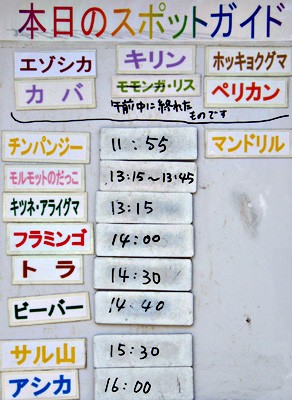 本日のスポットガイド
エゾシカ キリン ホッキョクグマ
カバ モモンガ・リス ペリカン
午前中に終れた
ものです
チンパンジー 11:55 マンドリル
モルモットのだっこ 13:15～13:45
キツネ・アライグマ 13:15
フラミンゴ 14:00
トラ 14:30
ビーバー 14:40
サル山 15:30
アシカ 16:00